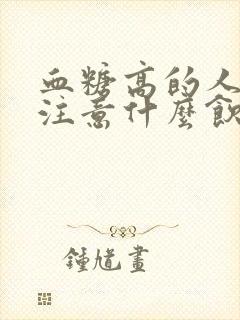 血糖高的人
注意什麼飲
鍾馗畫